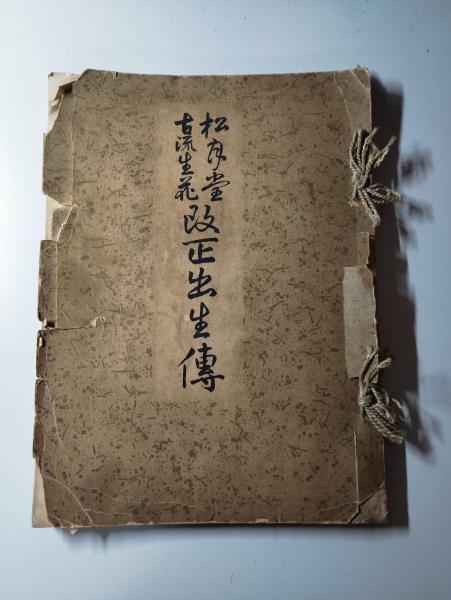 松月堂
古流生花
改正出生傳